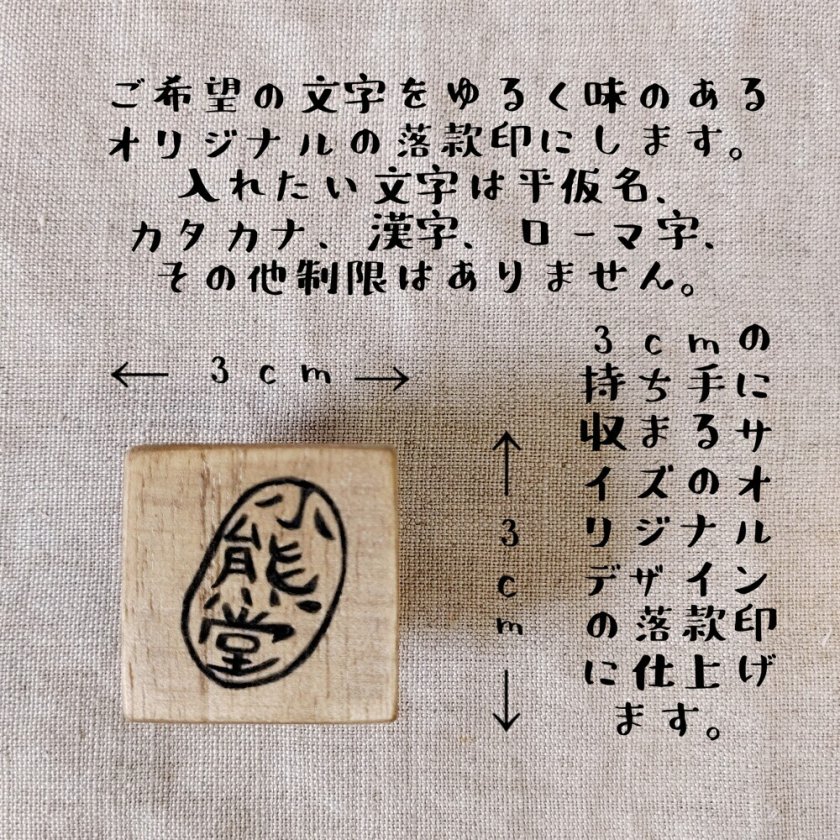 ご希望の文字をゆるく味のある
オリジナルの落款印にします。
入れたい文字は平仮名、
カタカナ、漢字、ローマ字、
その他制限はありません。
3cm
3cm
3cmの
持ち手に
収まるサ
イズのオ
リジナル
デザイン
の落款印
に仕上げ
ます。
小熊堂